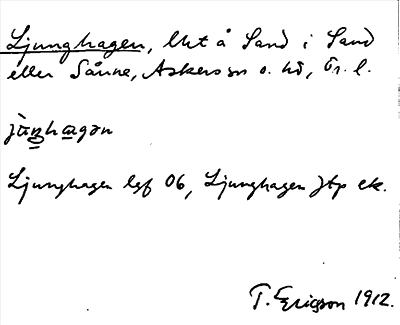 Ljunghagen, lht å Sand i Sand
eller Sånne, Askers sn o. hd, Ör. l.
jùŋhagən
Ljunghagen lgf 06, Ljunghagen jtp ek.
T. Ericson 1912.